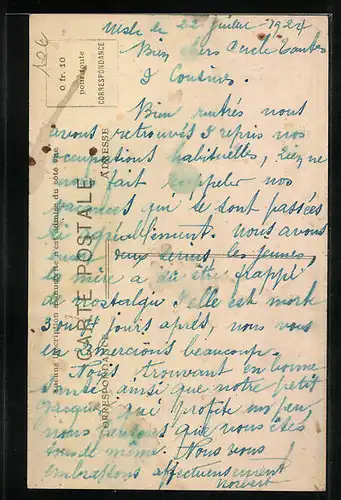 le 22 Juillet 1924
Bien chers Oncle Tantes
& Cousines.
Bien rentrés nous
avons retrouvés & repris nos
occupations habituelles, rien ne
nous fait rappeler nos
vacances que se sont passées
si agréablement. Nous avons
eu nos serins, les jeunes,
la mère a dû être frappé
de nostalgie & elle est morte
3 ou 4 jours après, nous vous
en remercions beaucoup.
Nous trouvant en bonne
santé, ainsi que notre petit
Jacques, qui profite un peu,
nous pensons que vous êtes
tous de même. Nous vous
embrassons affectueusement
Norbert
0 fr. 10
pour toute
CORRESPONDANCE
CARTE POSTALE
CORRESPONDANCE
ADRESSE
10c